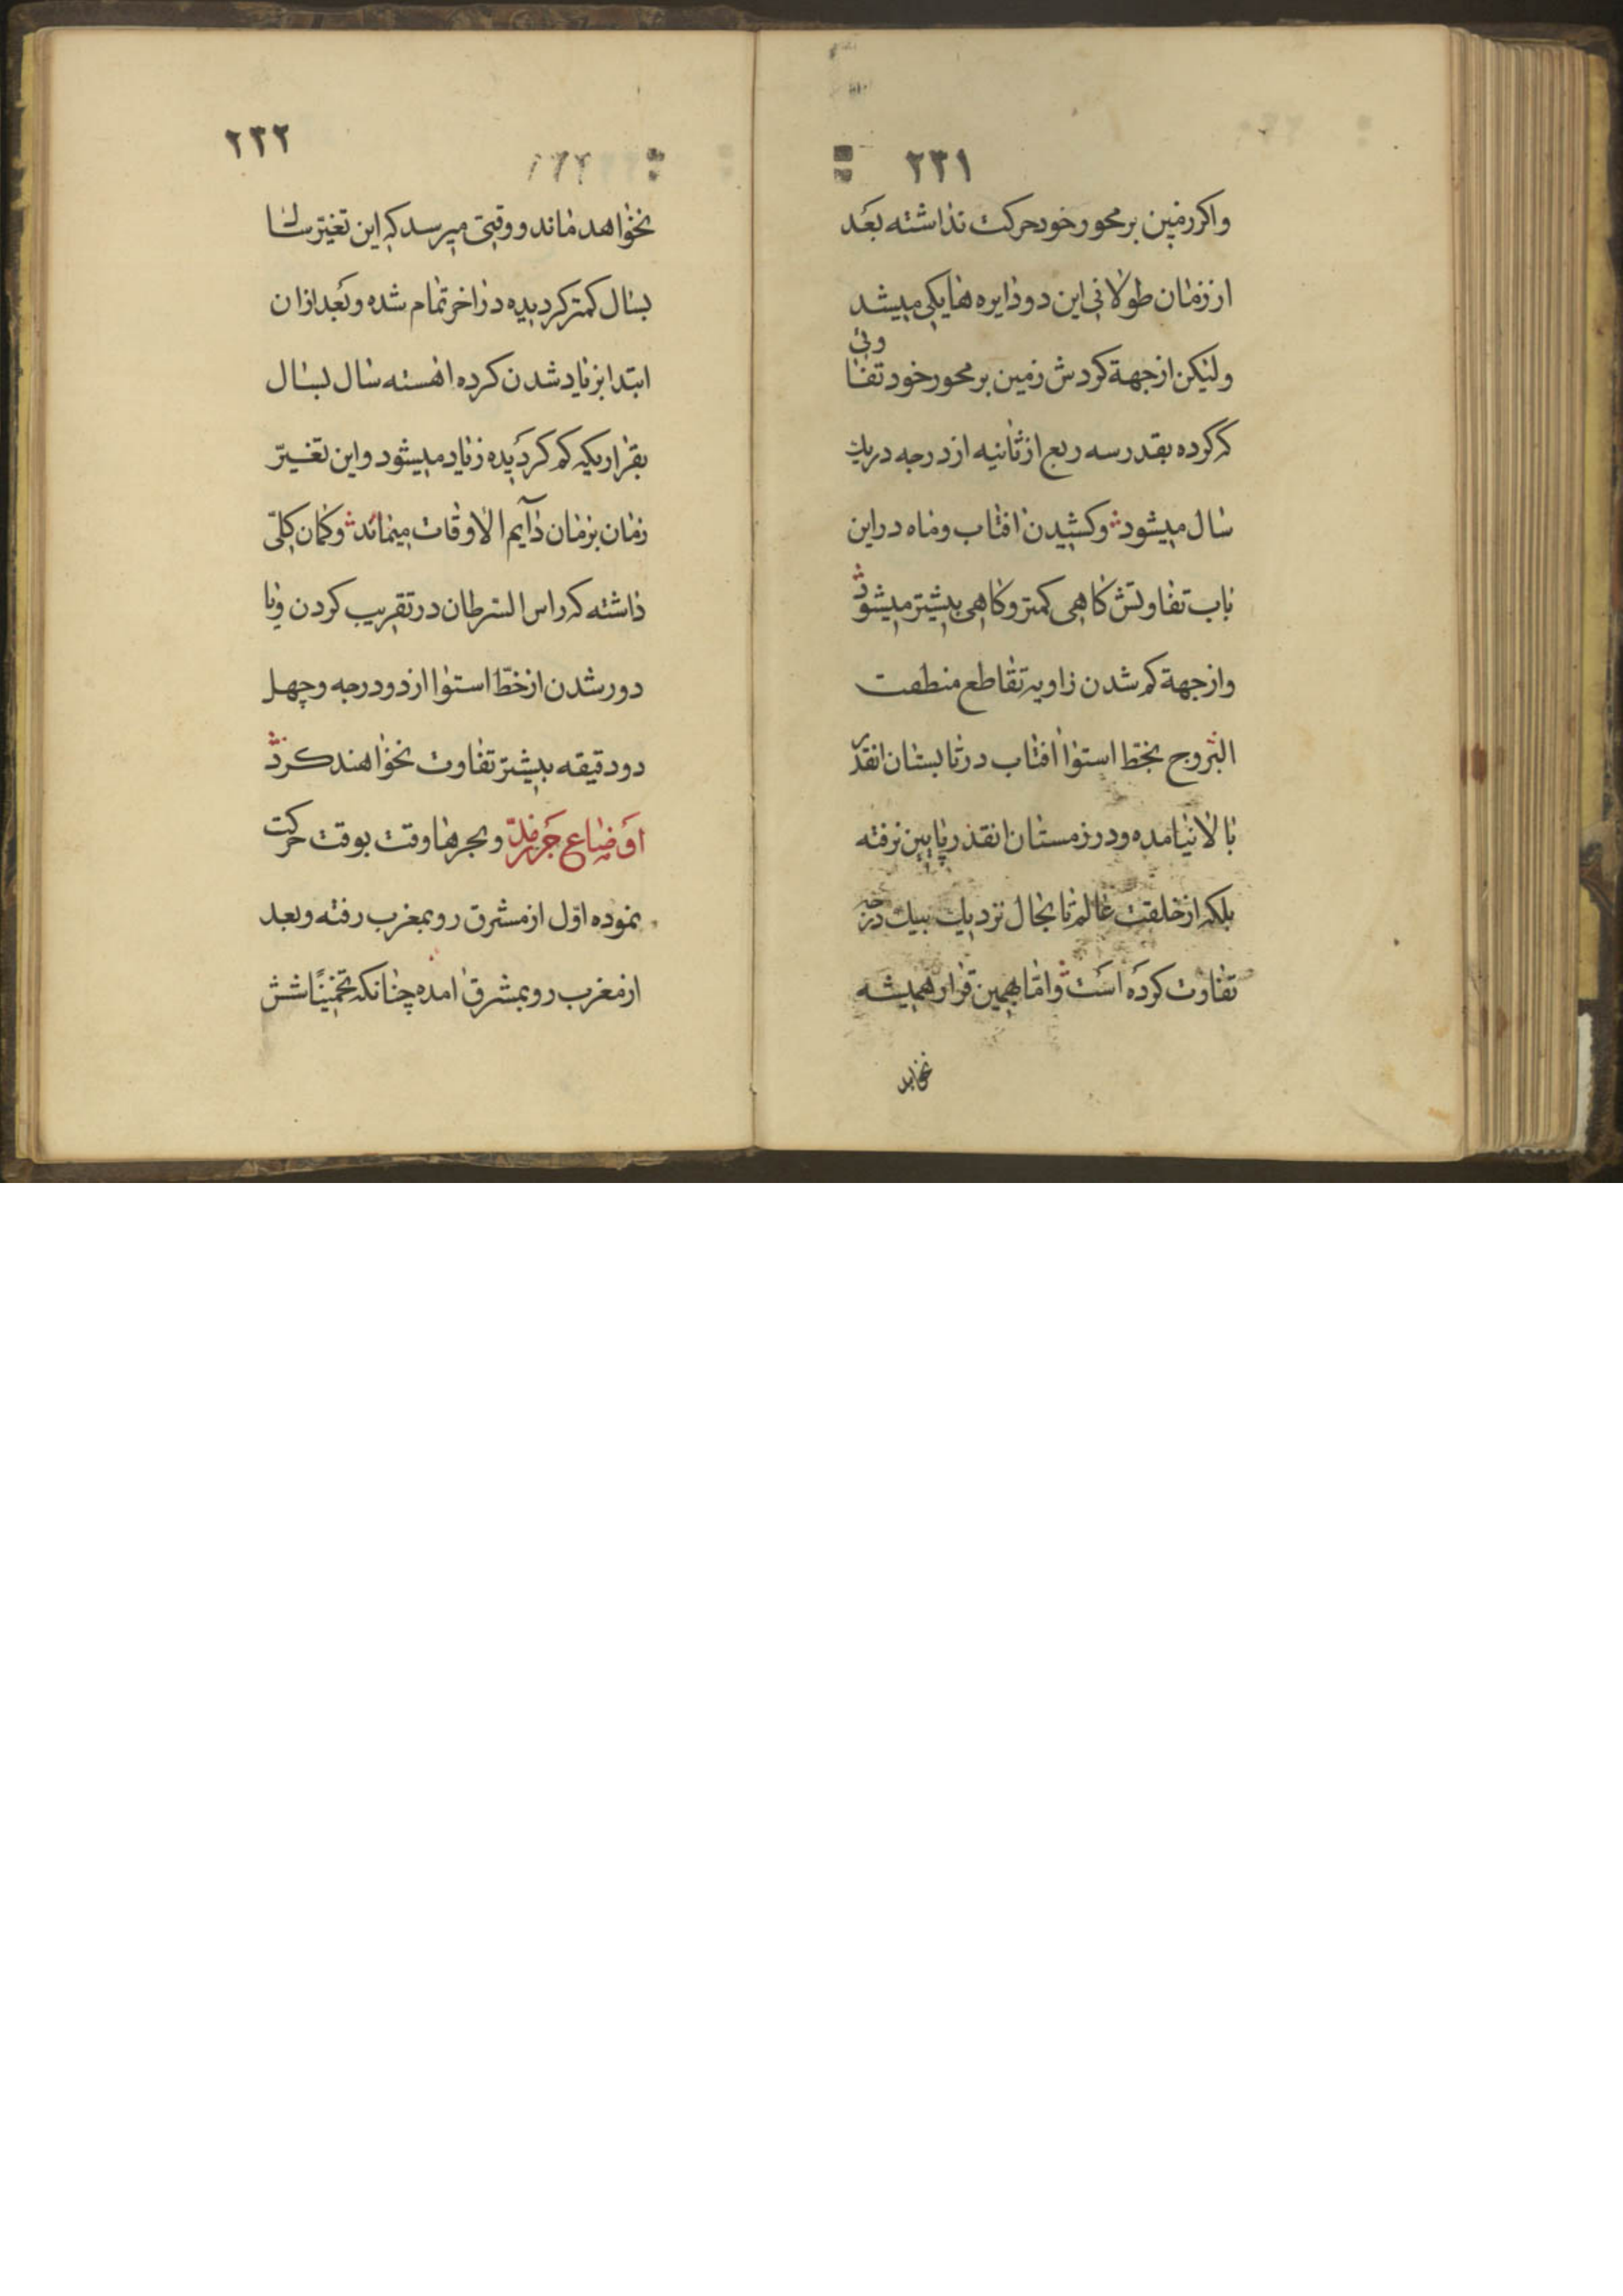 ۲۳۱
واکر زمین بر محور خود حرکت نداشته بعد
از زمان طولانی این دو دایره ها یکی میشد
ولیکن از جهة کردش زمین بر محور خود تفاوتی
که کرده بقدر سه ربع از ثانیه از درجه در یك
سال میشود و کشیدن افتاب و ماه در این
باب تفاوتش کاهی کمتر و کاهی بیشتر میشود
و از جهة کم شدن زاویه تقاطع منطقت
البروج بخط استوا افتاب در تابستان انقدر
بالا نیامده و در زمستان انقدر پایین نرفته
بلکه از خلقت عالم تا بحال نزدیك بیك درجه
تفاوت کرده است و اما بهمین قرار همیشه
نخواهد
۲۳۲
نخواهد ماند و وقتی میرسد که این تغیّر سال
بسال کمتر کردیده در اخر تمام شده و بعد از ان
ابتدا بزیاد شدن کرده اهسته سال بسال
بقراریکه کم کردیده زیاد میشود و این تغیّر
زمان بزمان دآیم الاوقات میماند و کمان کلّی
داشته که راس السرطان در تقریب کردن و یا
دور شدن از خطّ استوا از دو درجه و چهل
دو دقیقه بیشتر تفاوت نخواهند کرد
اوضاع جزر مدّ و بحرها وقت بوقت حرکت
نموده اوّل از مشرق رو بمغرب رفته و بعد
از مغرب رو بمشرق امده چنانکه تخمینًا شش